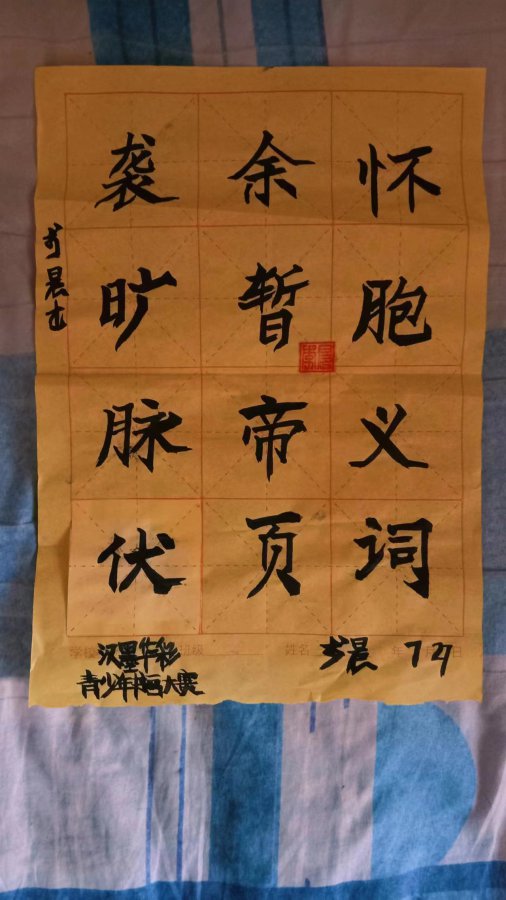 怀胞义词
余暂帝页
袭旷脉伏
汉墨华彩
青少年书画大赛
学校
班级
姓名
晨
年
日
7 21